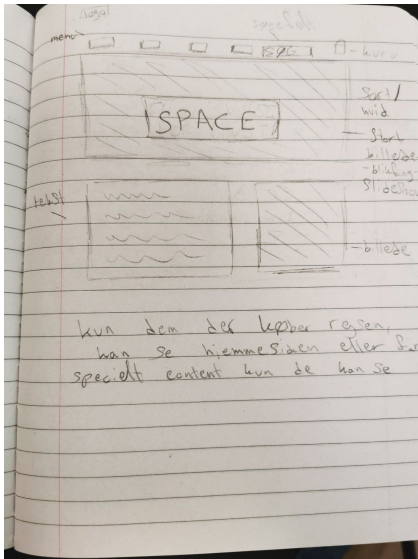 menu
SØG
- kurv
Sort/
hvid
SPACE
Stort
billede
Slidesho
tekst
- billede
kun dem der køber rejsen,
kan se hjemmesiden eller får
specielt content kun de kan se